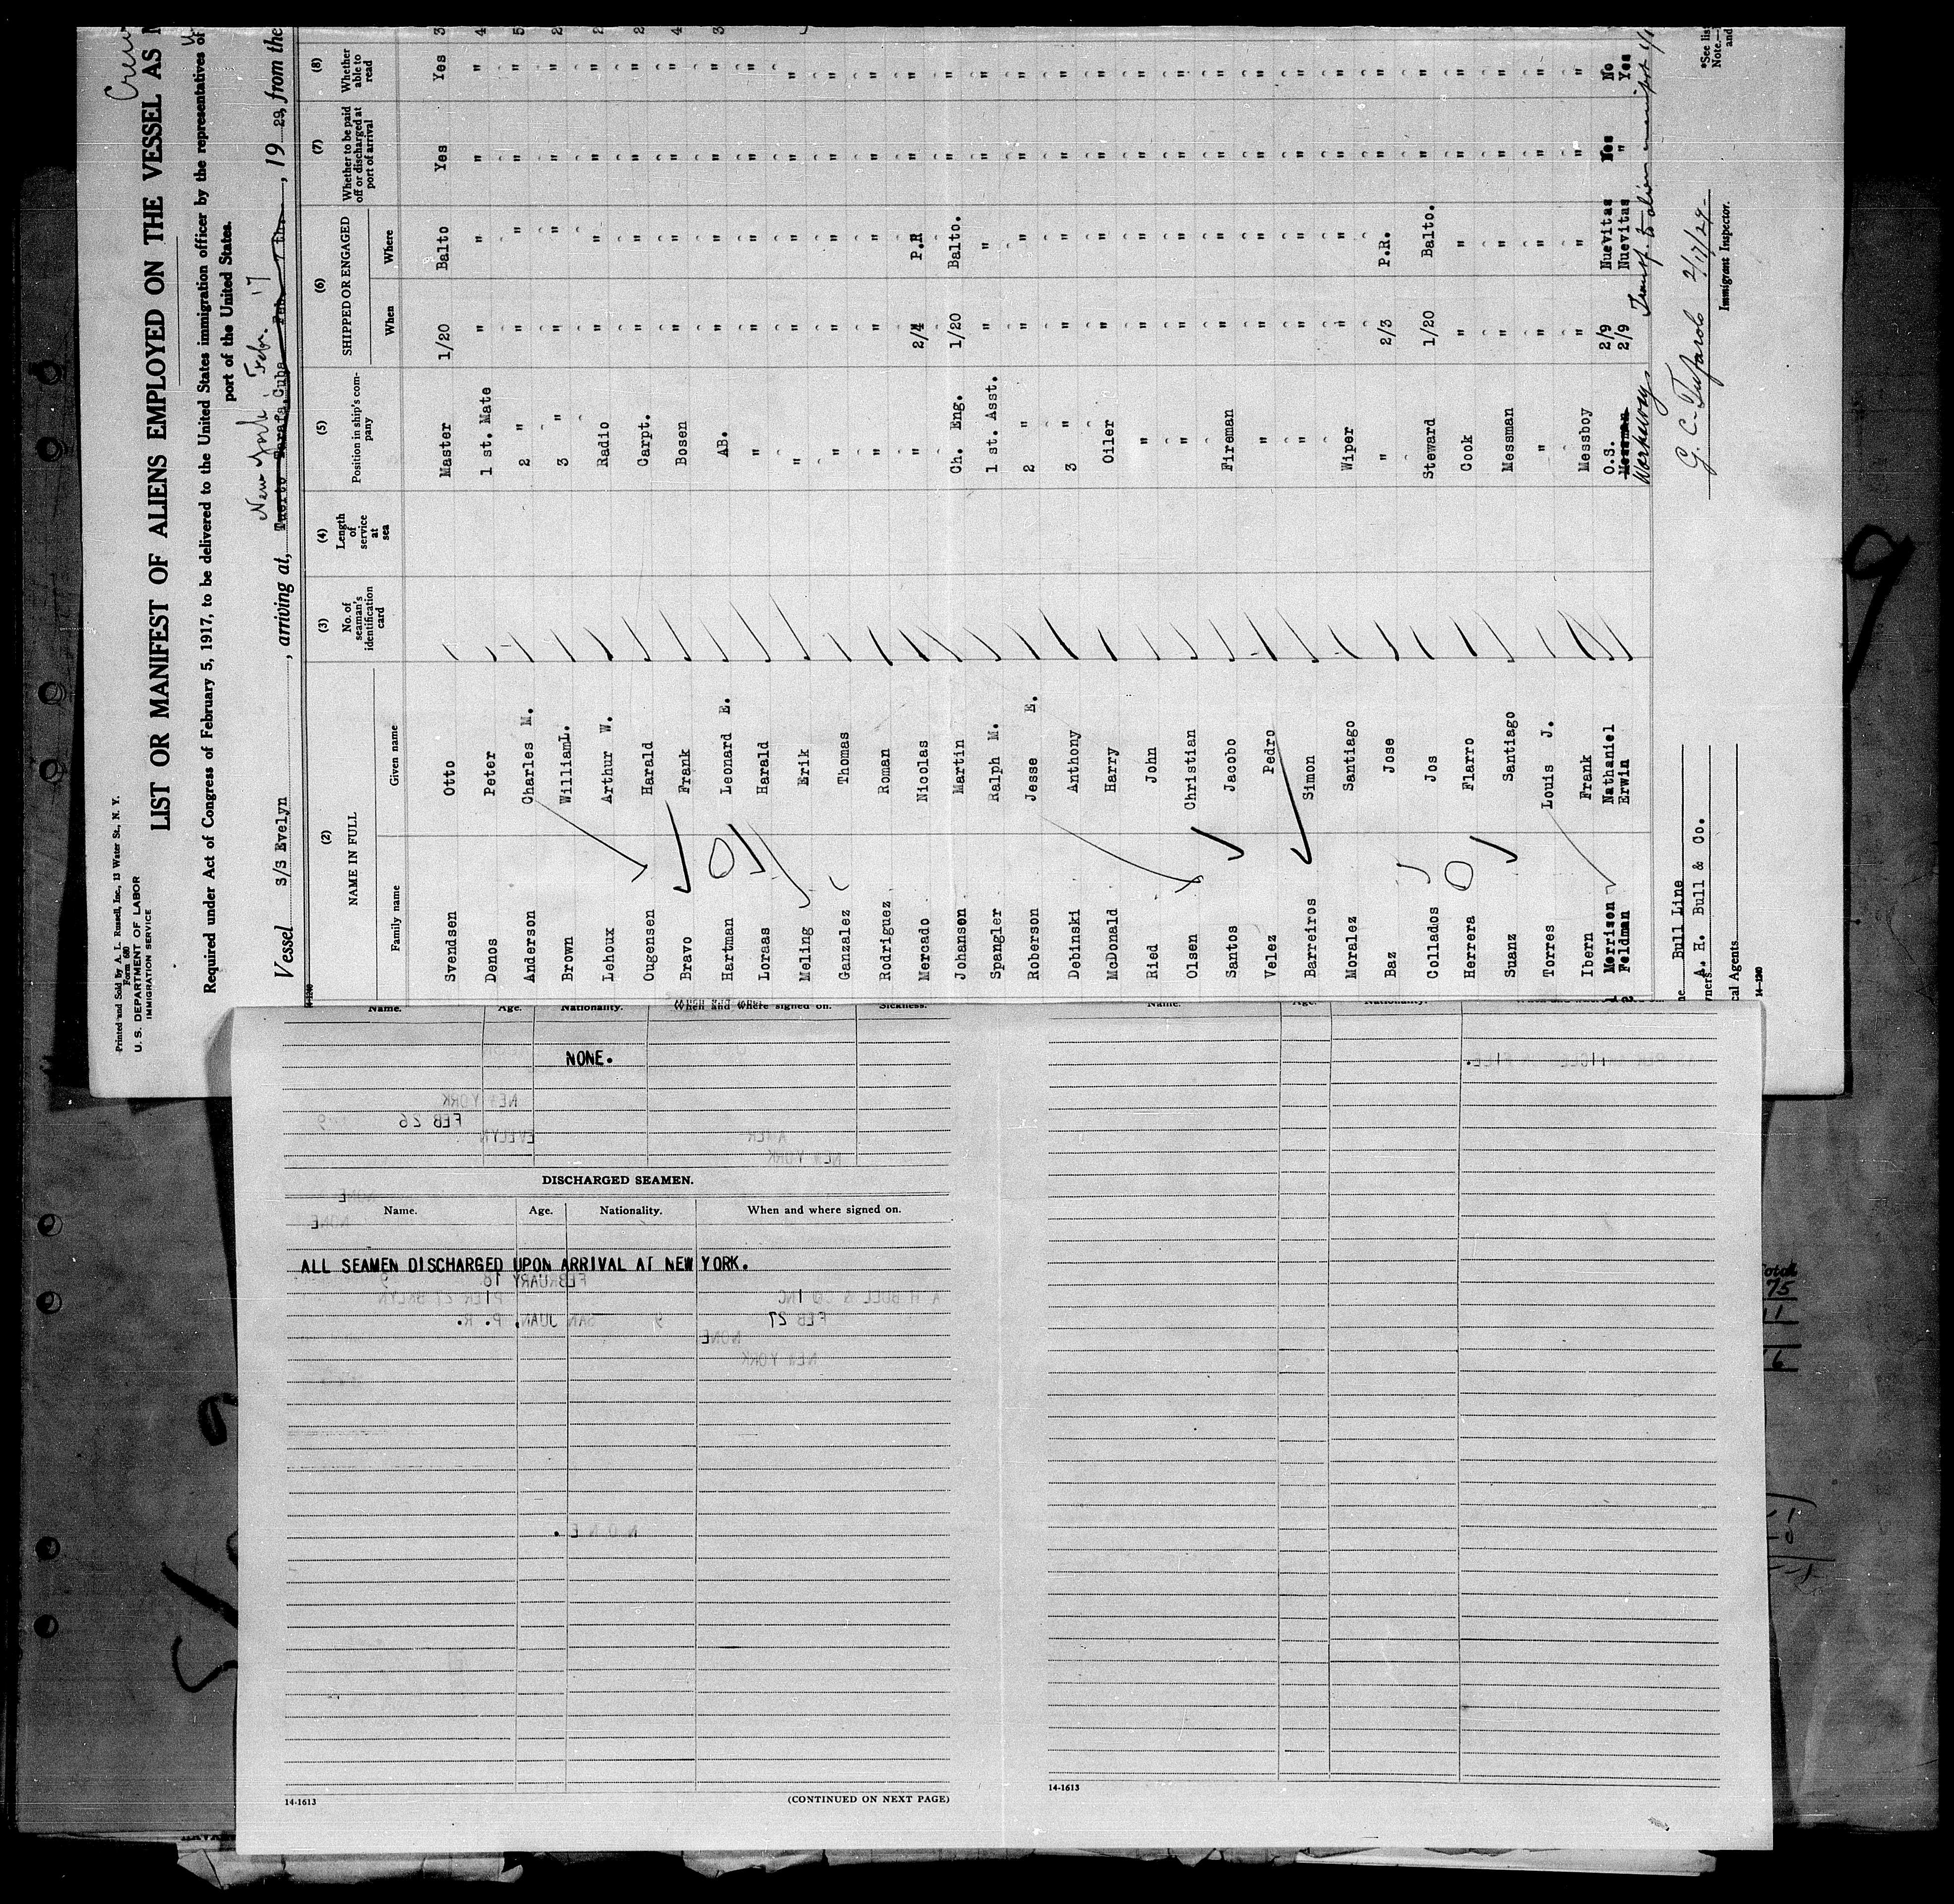 Printed and Sold by A. L. Russell, Inc., 13 Water St., N. Y.
Form 680
U. S. DEPARTMENT OF LABOR
IMMIGRATION SERVICE
Crew
LIST OR MANIFEST OF ALIENS EMPLOYED ON THE VESSEL AS
Required under Act of Congress of February 5, 1917, to be delivered to the United States immigration officer by the representatives of
port of the United States.
New York, Febr. 17
Vessel S/S Evelyn, arriving at, Puerto Tarafa, Cuba Feb. 7th, 1929, from the
14-1240
(2) NAME IN FULL (3) No. of seaman's identification card (4) Length of service at sea (5) Position in ship's company (6) SHIPPED OR ENGAGED (7) Whether to be paid off or discharged at port of arrival (8) Whether able to read
Family name Given name When Where
Svendsen Otto Master 1/20 Balto Yes Yes 3
Denos Peter 1 st. Mate " " " " 4
Anderson Charles M. 2 " " " " " 5
Brown William L. 3 " " " " " 2
Lehoux Arthur W. Radio " " " " 2
Ougensen Harald Carpt. " " " " 2
Bravo Frank Bosen " " " " 4
Hartman Leonard E. AB. " " " " 3
Loraas Harald " " " " "
Meling Erik " " " " "
Ganzalez Thomas " " " " "
Rodriguez Roman " " " " "
Mercado Nicolas " 2/4 P.R " "
Johansen Martin Ch. Eng. 1/20 Balto. " "
Spangler Ralph M. 1 st. Asst. " " " "
Roberson Jesse E. 2 " " " " "
Debinski Anthony 3 " " " " "
McDonald Harry Oiler " " " "
Ried John " " " " "
Olsen Christian " " " " "
Santos Jacobo Fireman " " " "
Velez Pedro " " " " "
Barreiros Simon " " " " "
Moralez Santiago Wiper " " " "
Baz Jose " 2/3 P.R. " "
Collados Jos Steward 1/20 Balto. " "
Herrera Flarro Cook " " " "
Suanz Santiago Messman " " " "
Torres Louis J. " " " " "
Ibern Frank Messboy " " " "
Morrison Nathaniel O.S. 2/9 Nuevitas Yes No
Feldman Erwin Messman 2/9 Nuevitas " Yes
Workaway Transf. to alien manifest
Bull Line
A. H. Bull & Co.
cal Agents
14-1240
G. C. Tufarolo 2/17/29-
Immigrant Inspector.
*See lis
Note.—
and
Name. Age. Nationality. When and where signed on. Sickness.
NONE.
NEW YORK
FEB 26 9
EVELYN AMER
NEW YORK
NONE
NONE
DISCHARGED SEAMEN.
Name. Age. Nationality. When and where signed on.
ALL SEAMEN DISCHARGED UPON ARRIVAL AT NEW YORK.
FEBRUARY 18 9
PIER 27 BKLYN A H BULL & CO INC
FEB 27 9 SAN JUAN, P. R.
NONE
NEW YORK
NONE.
14-1613
(CONTINUED ON NEXT PAGE)
Name. Age. Nationality.
14-1613
Total
75
11
9